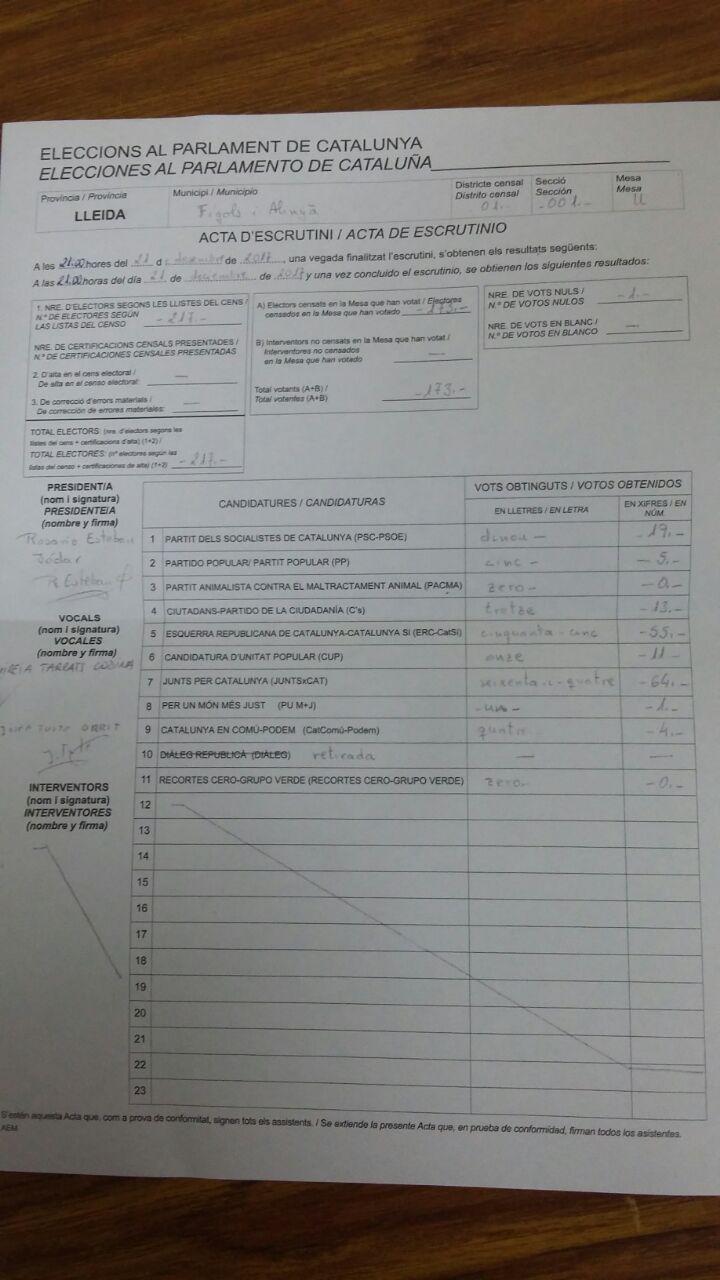 ELECCIONS AL PARLAMENT DE CATALUNYA
ELECCIONES AL PARLAMENTO DE CATALUÑA
Província / Provincia
LLEIDA
Municipi / Municipio
Fígols i Alinyà
Districte censal
Distrito censal
01.-
Secció
Sección
-001.-
Mesa
Mesa
U
ACTA D'ESCRUTINI / ACTA DE ESCRUTINIO
A les 21.00 hores del 21 d desembre de 2017, una vegada finalitzat l'escrutini, s'obtenen els resultats següents:
A las 21.00 horas del día 21 de de 2017 y una vez concluido el escrutinio, se obtienen los siguientes resultados:
1. NRE. D'ELECTORS SEGONS LES LLISTES DEL CENS /
N.º DE ELECTORES SEGÚN
LAS LISTAS DEL CENSO -217.-
NRE. DE CERTIFICACIONS CENSALS PRESENTADES /
N.º DE CERTIFICACIONES CENSALES PRESENTADAS
2. D'alta en el cens electoral /
De alta en el censo electoral: —
3. De correcció d'errors materials /
De corrección de errores materiales: —
TOTAL ELECTORS: (nre. d'electors segons les
llistes del cens + certificacions d'alta) (1+2) /
TOTAL ELECTORES: (nº electores según las
listas del censo + certificaciones de alta) (1+2) -217.-
A) Electors censats en la Mesa que han votat / Electores
censados en la Mesa que han votado -173.-
B) Interventors no censats en la Mesa que han votat /
Interventores no censados
en la Mesa que han votado —
Total votants (A+B) /
Total votantes (A+B) -173.-
NRE. DE VOTS NULS /
N.º DE VOTOS NULOS -1.-
NRE. DE VOTS EN BLANC /
N.º DE VOTOS EN BLANCO —
PRESIDENT/A
(nom i signatura)
PRESIDENTE/A
(nombre y firma)
Rosario Esteban
Jódar
R Esteban
VOCALS
(nom i signatura)
VOCALES
(nombre y firma)
TARRATS
INTERVENTORS
(nom i signatura)
INTERVENTORES
(nombre y firma)
CANDIDATURES / CANDIDATURAS
VOTS OBTINGUTS / VOTOS OBTENIDOS
EN LLETRES / EN LETRA
EN XIFRES / EN NÚM.
1 PARTIT DELS SOCIALISTES DE CATALUNYA (PSC-PSOE) dinou - -19.-
2 PARTIDO POPULAR/ PARTIT POPULAR (PP) cinc - -5.-
3 PARTIT ANIMALISTA CONTRA EL MALTRACTAMENT ANIMAL (PACMA) zero - -0.-
4 CIUTADANS-PARTIDO DE LA CIUDADANÍA (C's) tretze -13.-
5 ESQUERRA REPUBLICANA DE CATALUNYA-CATALUNYA SÍ (ERC-CatSí) cinquanta-cinc -55.-
6 CANDIDATURA D'UNITAT POPULAR (CUP) onze -11-
7 JUNTS PER CATALUNYA (JUNTSxCAT) seixanta-i-quatre -64.-
8 PER UN MÓN MÉS JUST (PU M+J) -un- -1.-
9 CATALUNYA EN COMÚ-PODEM (CatComú-Podem) quatre -4.-
10 DIÀLEG REPUBLICÀ (DIÀLEG) retirada — —
11 RECORTES CERO-GRUPO VERDE (RECORTES CERO-GRUPO VERDE) zero.- -0.-
12
13
14
15
16
17
18
19
20
21
22
23
S'estén aquesta Acta que, com a prova de conformitat, signen tots els assistents. / Se extiende la presente Acta que, en prueba de conformidad, firman todos los asistentes.
AEM